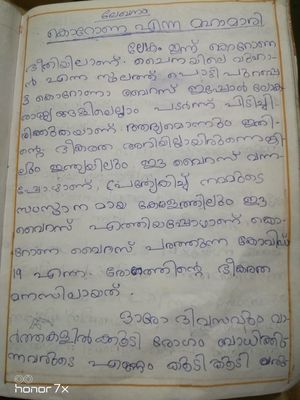 ലേഖനം
കൊറോണ എന്ന മഹാമാരി
ലോകം ഇന്ന് കൊറോണ
ഭീതിയിലാണ്. ചൈനയിലെ വുഹാ
ൻ എന്ന സ്ഥലത്ത് പൊട്ടി പുറപ്പെ
ട്ട കൊറോണാ വൈറസ് ഇപ്പോൾ ലോക
രാജ്യങ്ങളിലെല്ലാം പടർന്ന് പിടിച്ചി
രിക്കുകയാണ്. ആദ്യമൊന്നും ഇതി
ന്റെ ഭീകരത അറിയില്ലായിരുന്നെങ്കി
ലും ഇന്ത്യയിലും ഈ വൈറസ് വന്ന
പ്പോഴാണ്, പ്രത്യേകിച്ച് നമ്മുടെ
സംസ്ഥാനമായ കേരളത്തിലും ഈ
വൈറസ് എത്തിയപ്പോഴാണ് കൊ
റോണ വൈറസ് പരത്തുന്ന കോവിഡ്
19 എന്ന രോഗത്തിന്റെ ഭീകരത
മനസിലായത്.
ഓരോ ദിവസവും വാ
ർത്തകളിൽക്കൂടി രോഗം ബാധിക്കു
ന്നവരുടെ എണ്ണം കൂടി കൂടി
honor 7x